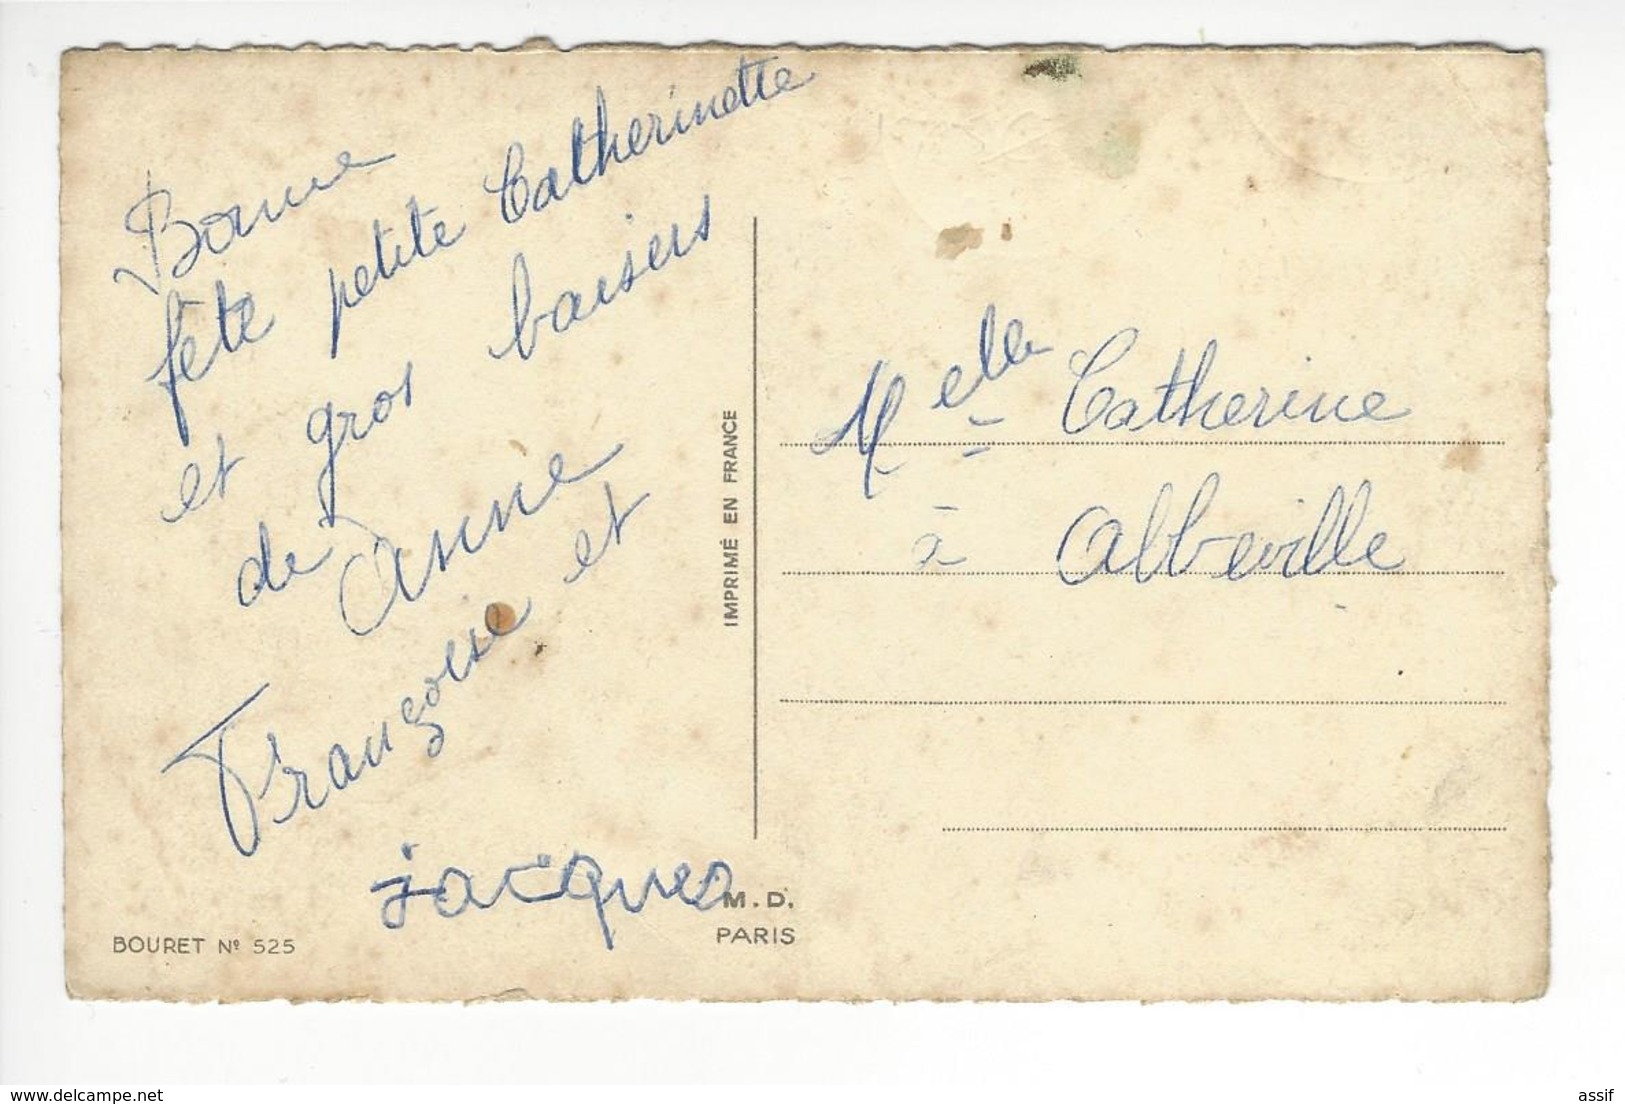 Bonne
fête petite Catherinette
et gros baisers
de Anne
Françoise et
jacques
BOURET Nº 525
M.D.
PARIS
IMPRIMÉ EN FRANCE
Melle Catherine
à Abbeville
www.delcampe.net
assif